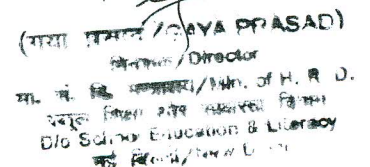 (गया प्रसाद/GAYA PRASAD)
निदेशक/Director
मा. सं. वि. मंत्रालय/Min. of H. R. D.
स्कूल शिक्षा और साक्षरता विभाग
D/o School Education & Literacy
नई दिल्ली/New Delhi